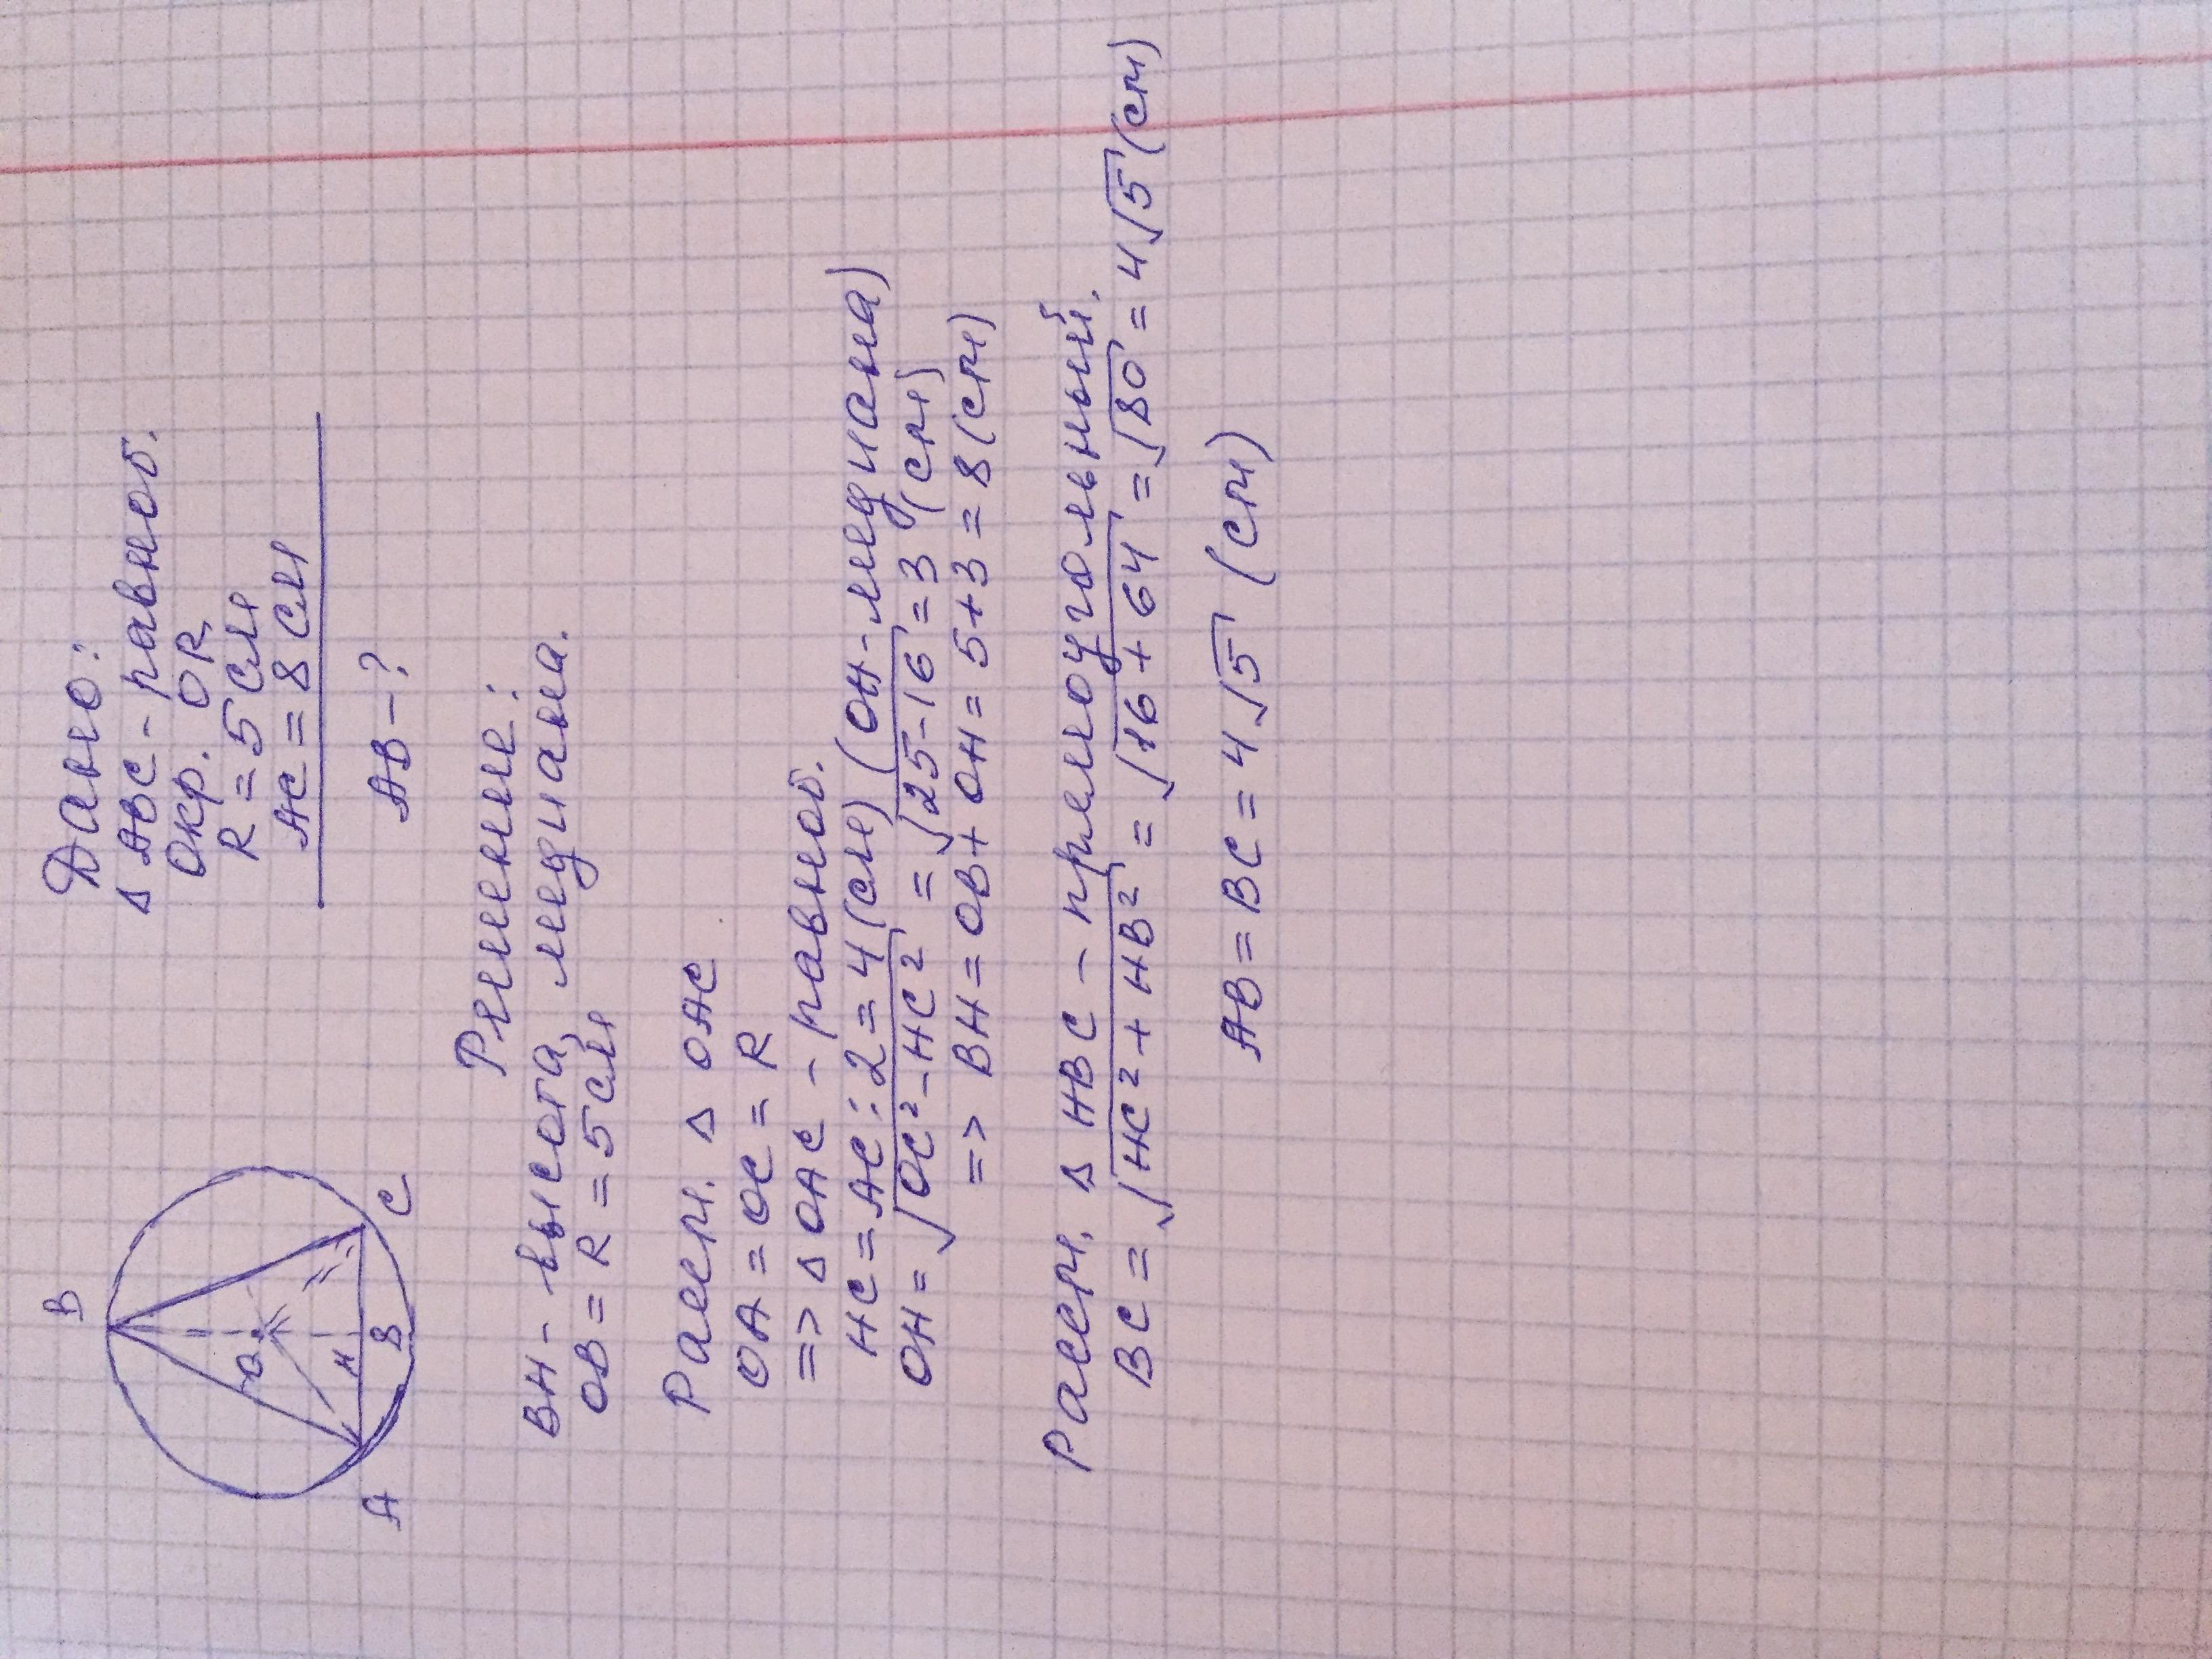 B
O
H
8
A
C
Дано:
Δ ABC - равноб.
Окр. OR
R = 5 см
AC = 8 см
AB - ?
Решение:
BH - высота, медиана.
OB = R = 5 см
Рассм. Δ OAC
OA = OC = R
=> Δ OAC - равноб.
HC = AC : 2 = 4 (см) (OH - медиана)
OH = √OC² - HC² = √25 - 16 = 3 (см)
=> BH = OB + OH = 5 + 3 = 8 (см)
Рассм. Δ HBC - прямоугольный.
BC = √HC² + HB² = √16 + 64 = √80 = 4√5 (см)
AB = BC = 4√5 (см)